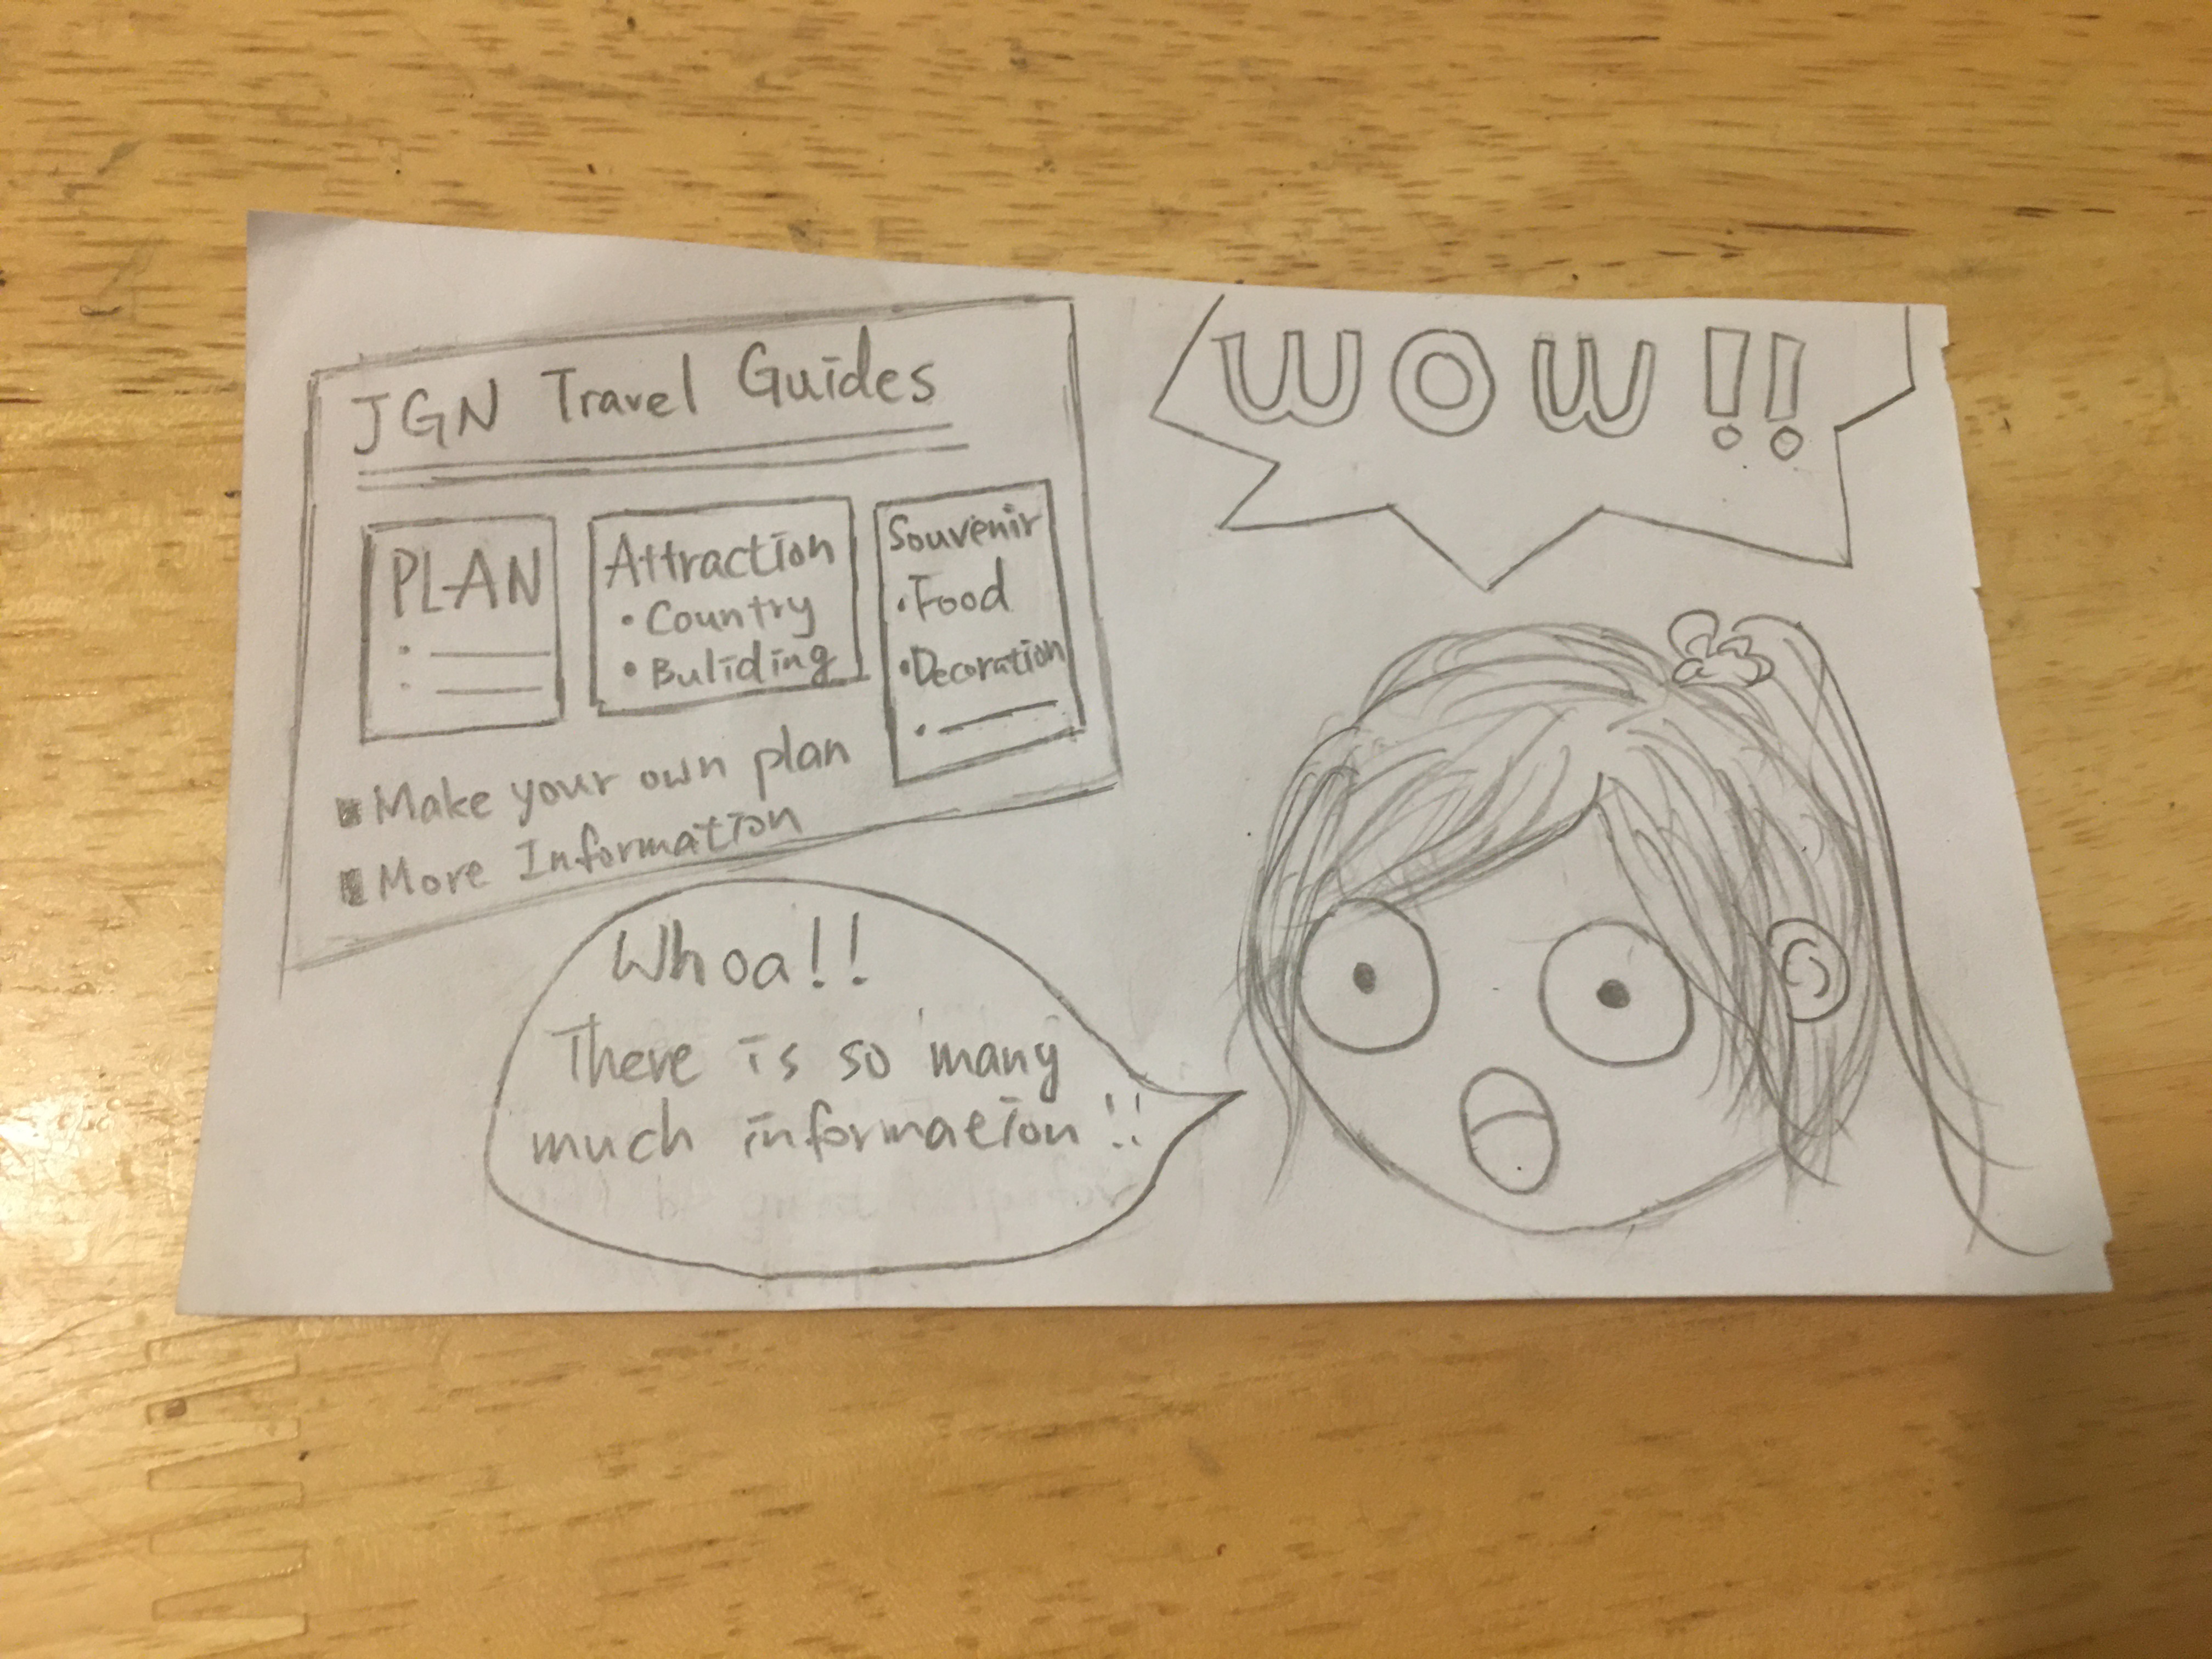 JGN Travel Guides
PLAN
Attraction
• Country
• Buliding
Souvenir
• Food
• Decoration
■ Make your own plan
■ More Information
WOW!!
Whoa!!
There is so many
much information!!